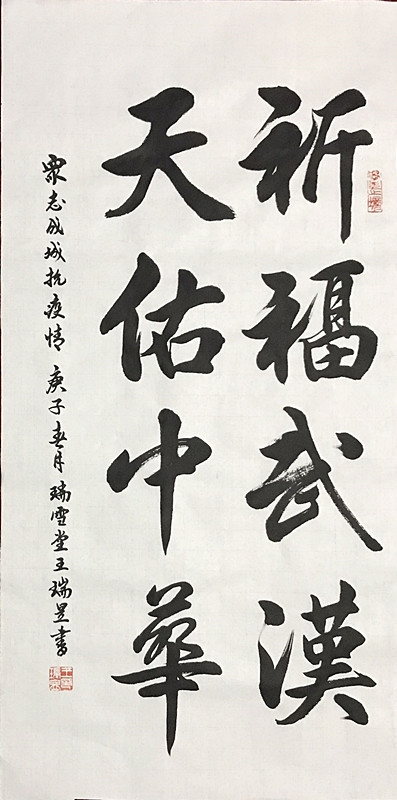 祈福武漢
天佑中華
眾志成城抗疫情 庚子春月瑞雪堂王瑞昱書